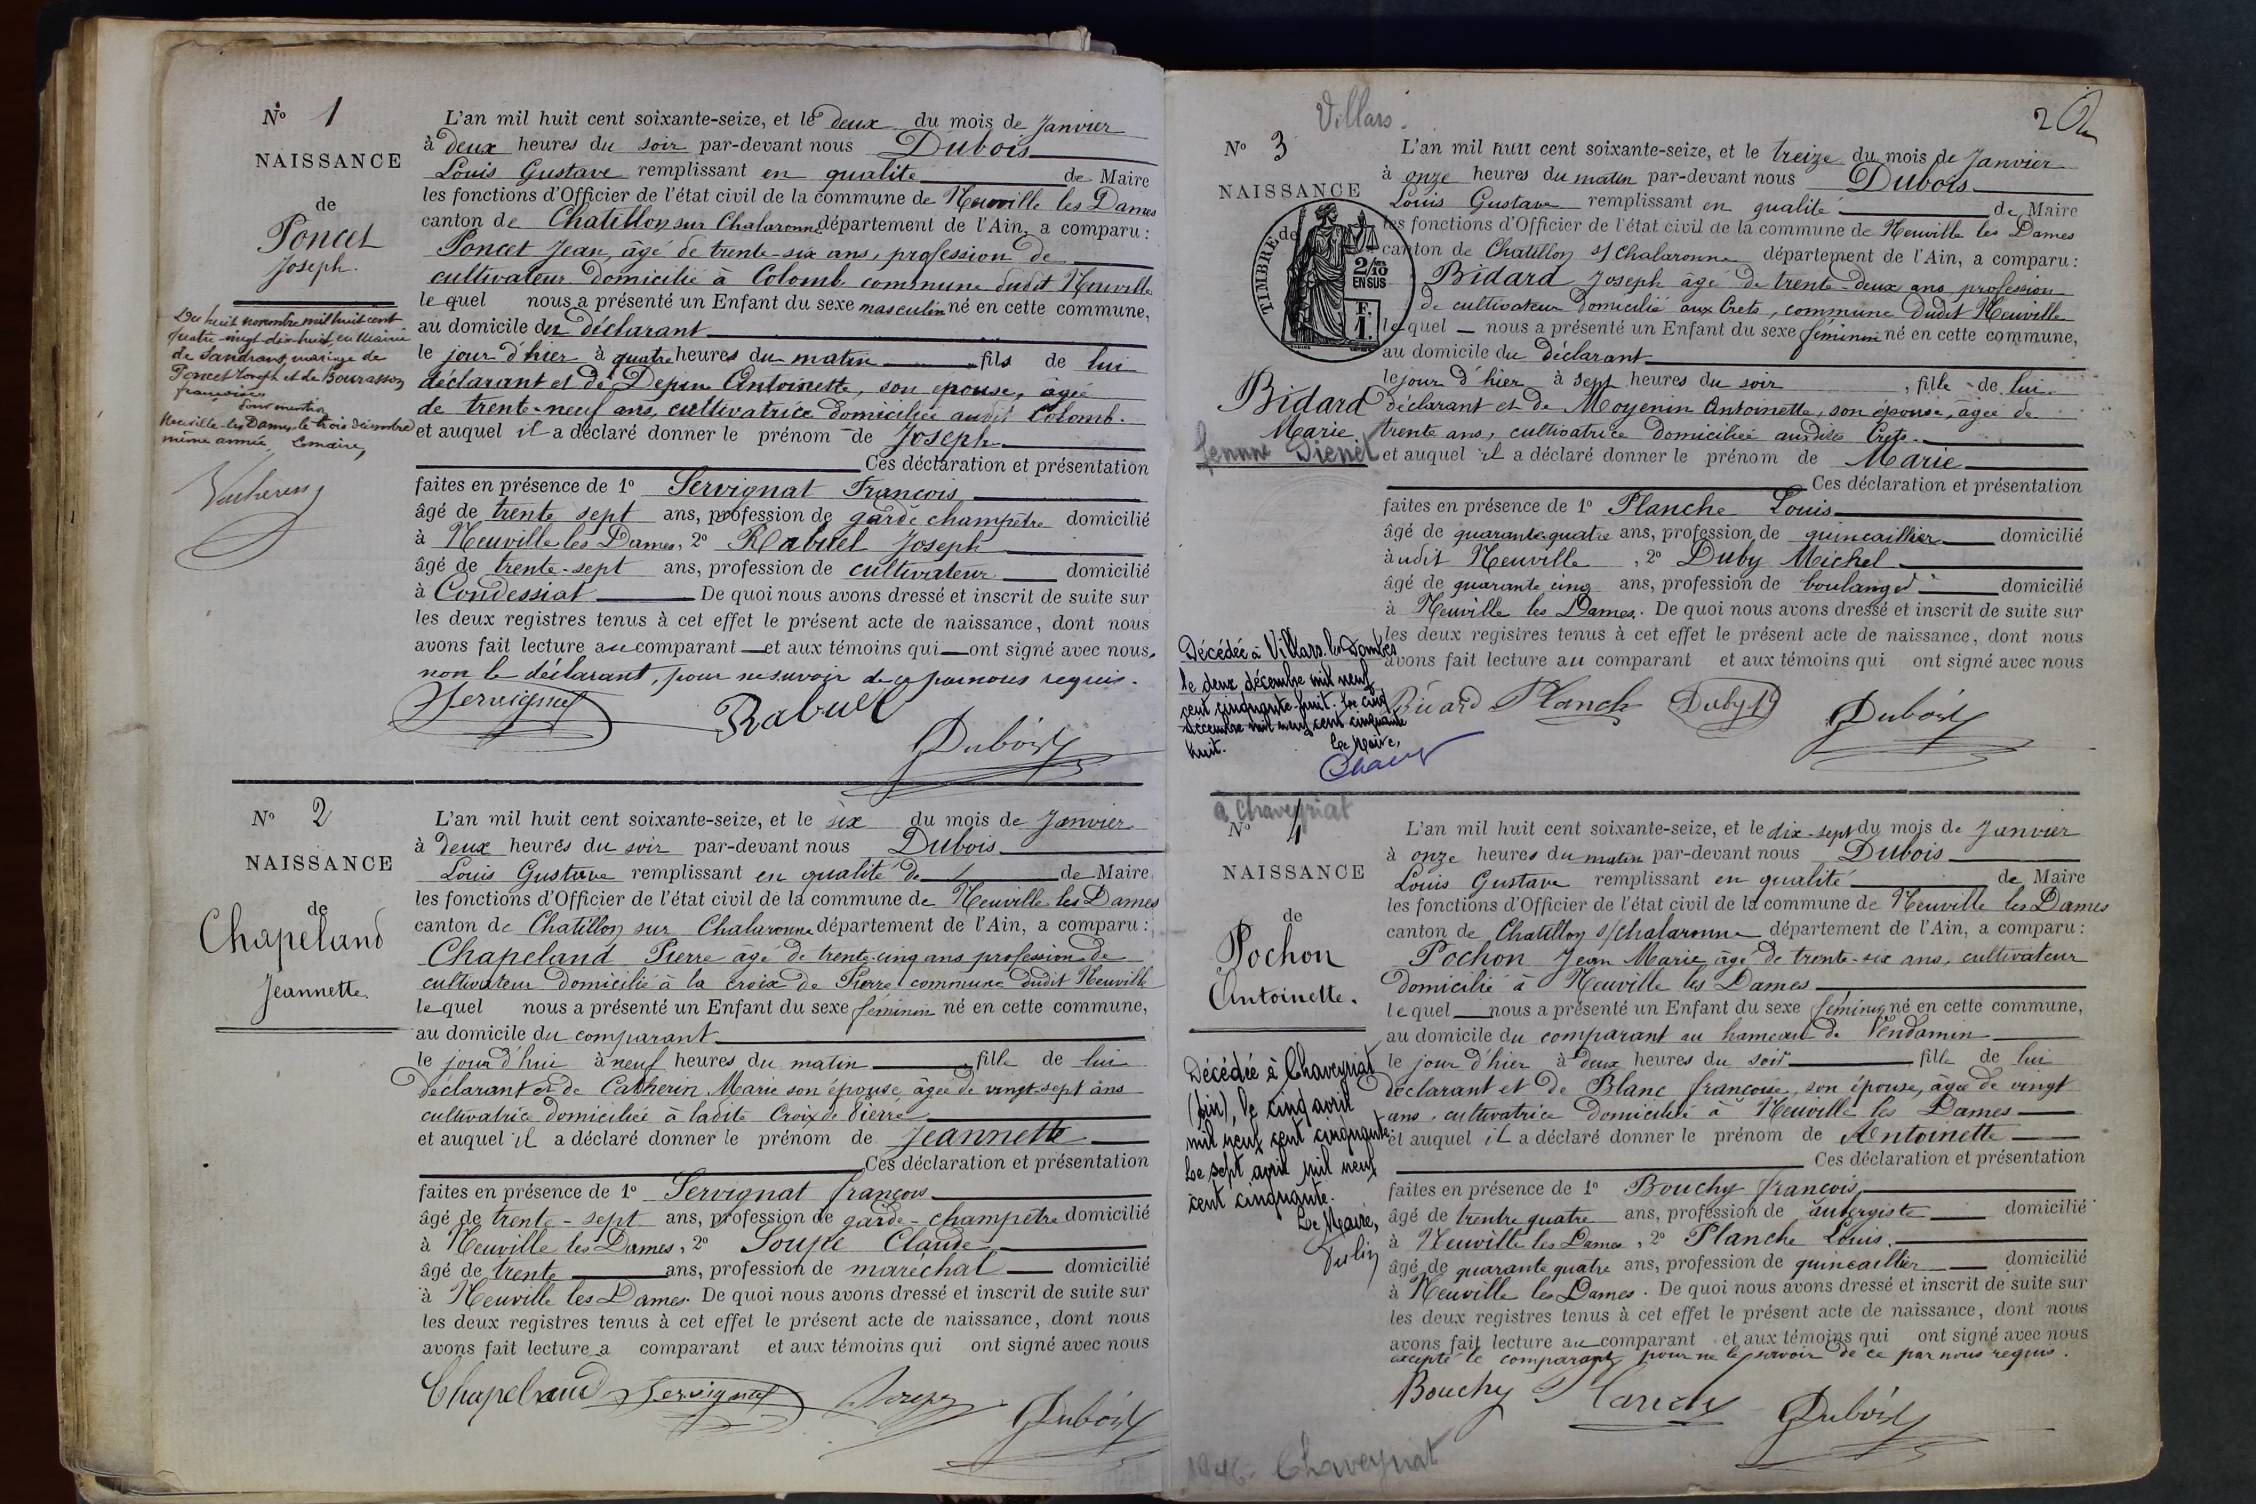 N° 1
NAISSANCE
de
Poncet
Joseph.
Du huit novembre mil huit cent
quatre-vingt-dix-huit, en Mairie
de Sandrans, mariage de
Poncet Joseph et de Bourasson
françoise
pour mention
Neuville-les-Dames, le trois décembre
même année. Le maire,
L'an mil huit cent soixante-seize, et le deux du mois de Janvier
à deux heures du soir par-devant nous Dubois
Louis Gustave remplissant en qualité de Maire
les fonctions d'Officier de l'état civil de la commune de Neuville les Dames
canton de Chatillon sur Chalaronne département de l'Ain, a comparu :
Poncet Jean, âgé de trente-six ans, profession de
cultivateur domicilié à Colomb commune dudit Neuville
le quel nous a présenté un Enfant du sexe masculin né en cette commune,
au domicile du déclarant
le jour d'hier à quatre heures du matin fils de lui
déclarant et de Depin Antoinette, son épouse, âgée
de trente-neuf ans, cultivatrice domiciliée audit Colomb.
et auquel il a déclaré donner le prénom de Joseph
Ces déclaration et présentation
faites en présence de 1° Servignat François
âgé de trente sept ans, profession de garde champêtre domicilié
à Neuville les Dames, 2° Rabuel Joseph
âgé de trente-sept ans, profession de cultivateur domicilié
à Condessiat De quoi nous avons dressé et inscrit de suite sur
les deux registres tenus à cet effet le présent acte de naissance, dont nous
avons fait lecture au comparant et aux témoins qui ont signé avec nous,
non le déclarant, pour ne savoir de ce par nous requis.
Servignat Rabuel
Dubois
N° 2
NAISSANCE
de
Chapeland
Jeannette.
L'an mil huit cent soixante-seize, et le six du mois de Janvier
à deux heures du soir par-devant nous Dubois
Louis Gustave remplissant en qualité de de Maire
les fonctions d'Officier de l'état civil de la commune de Neuville les Dames
canton de Chatillon sur Chalaronne département de l'Ain, a comparu :
Chapeland Pierre âgé de trente-cinq ans profession de
cultivateur domicilié à la croix de Pierre commune dudit Neuville
le quel nous a présenté un Enfant du sexe féminin né en cette commune,
au domicile du comparant
le jour d'hui à neuf heures du matin fille de lui
déclarant et de Catherin Marie son épouse, âgée de vingt-sept ans
cultivatrice domiciliée à ladite Croix de Pierre
et auquel il a déclaré donner le prénom de Jeannette
Ces déclaration et présentation
faites en présence de 1° Servignat françois
âgé de trente-sept ans, profession de garde-champêtre domicilié
à Neuville les Dames, 2° Soupe Claude
âgé de trente ans, profession de maréchal domicilié
à Neuville les Dames. De quoi nous avons dressé et inscrit de suite sur
les deux registres tenus à cet effet le présent acte de naissance, dont nous
avons fait lecture a comparant et aux témoins qui ont signé avec nous
Chapeland Servignat
Dubois
Villars.
2
N° 3
NAISSANCE
de
TIMBRE
2/10
EN SUS
F.
1.
Bidard
Marie.
femme
Décédée à Villars les Dombes
le deux décembre mil neuf
cent cinquante-huit. Le cinq
décembre mil neuf cent cinquante
huit.
Le Maire,
L'an mil huit cent soixante-seize, et le treize du mois de Janvier
à onze heures du matin par-devant nous Dubois
Louis Gustave remplissant en qualité de Maire
les fonctions d'Officier de l'état civil de la commune de Neuville les Dames
canton de Chatillon s/ Chalaronne département de l'Ain, a comparu :
Bidard Joseph âgé de trente-deux ans, profession
de cultivateur domicilié aux Crets, commune dudit Neuville
le quel nous a présenté un Enfant du sexe féminin né en cette commune,
au domicile du déclarant
le jour d'hier à sept heures du soir, fille de lui
déclarant et de Moyenin Antoinette, son épouse, âgée de
trente ans, cultivatrice domiciliée auxdits Crets.
et auquel il a déclaré donner le prénom de Marie
Ces déclaration et présentation
faites en présence de 1° Planche Louis
âgé de quarante-quatre ans, profession de quincaillier domicilié
à udit Neuville, 2° Duby Michel
âgé de quarante cinq ans, profession de boulanger domicilié
à Neuville les Dames. De quoi nous avons dressé et inscrit de suite sur
les deux registres tenus à cet effet le présent acte de naissance, dont nous
avons fait lecture au comparant et aux témoins qui ont signé avec nous
Bidard Planche Duby Dubois
à Chaveyriat
N° 4
NAISSANCE
de
Pochon
Antoinette.
Décédée à Chaveyriat
(Ain), le cinq avril
mil neuf cent cinquante
Le sept avril mil neuf
cent cinquante.
Le Maire,
L'an mil huit cent soixante-seize, et le dix-sept du mois de Janvier
à onze heures du matin par-devant nous Dubois
Louis Gustave remplissant en qualité de Maire
les fonctions d'Officier de l'état civil de la commune de Neuville les Dames
canton de Chatillon s/ chalaronne département de l'Ain, a comparu :
Pochon Jean Marie âgé de trente-six ans, cultivateur
domicilié à Neuville les Dames
le quel nous a présenté un Enfant du sexe féminin né en cette commune,
au domicile du comparant au hameau de Vendamin
le jour d'hier à deux heures du soir fille de lui
déclarant et de Blanc françoise, son épouse, âgée de vingt
ans, cultivatrice domiciliée à Neuville les Dames
et auquel il a déclaré donner le prénom de Antoinette
Ces déclaration et présentation
faites en présence de 1° Bouchy françois
âgé de trentre quatre ans, profession de aubergiste domicilié
à Neuville les Dames, 2° Planche Louis
âgé de quarante quatre ans, profession de quincaillier domicilié
à Neuville les Dames. De quoi nous avons dressé et inscrit de suite sur
les deux registres tenus à cet effet le présent acte de naissance, dont nous
avons fait lecture au comparant et aux témoins qui ont signé avec nous
excepté le comparant pour ne le savoir de ce par nous requis.
Bouchy Planche Dubois
Chaveyriat